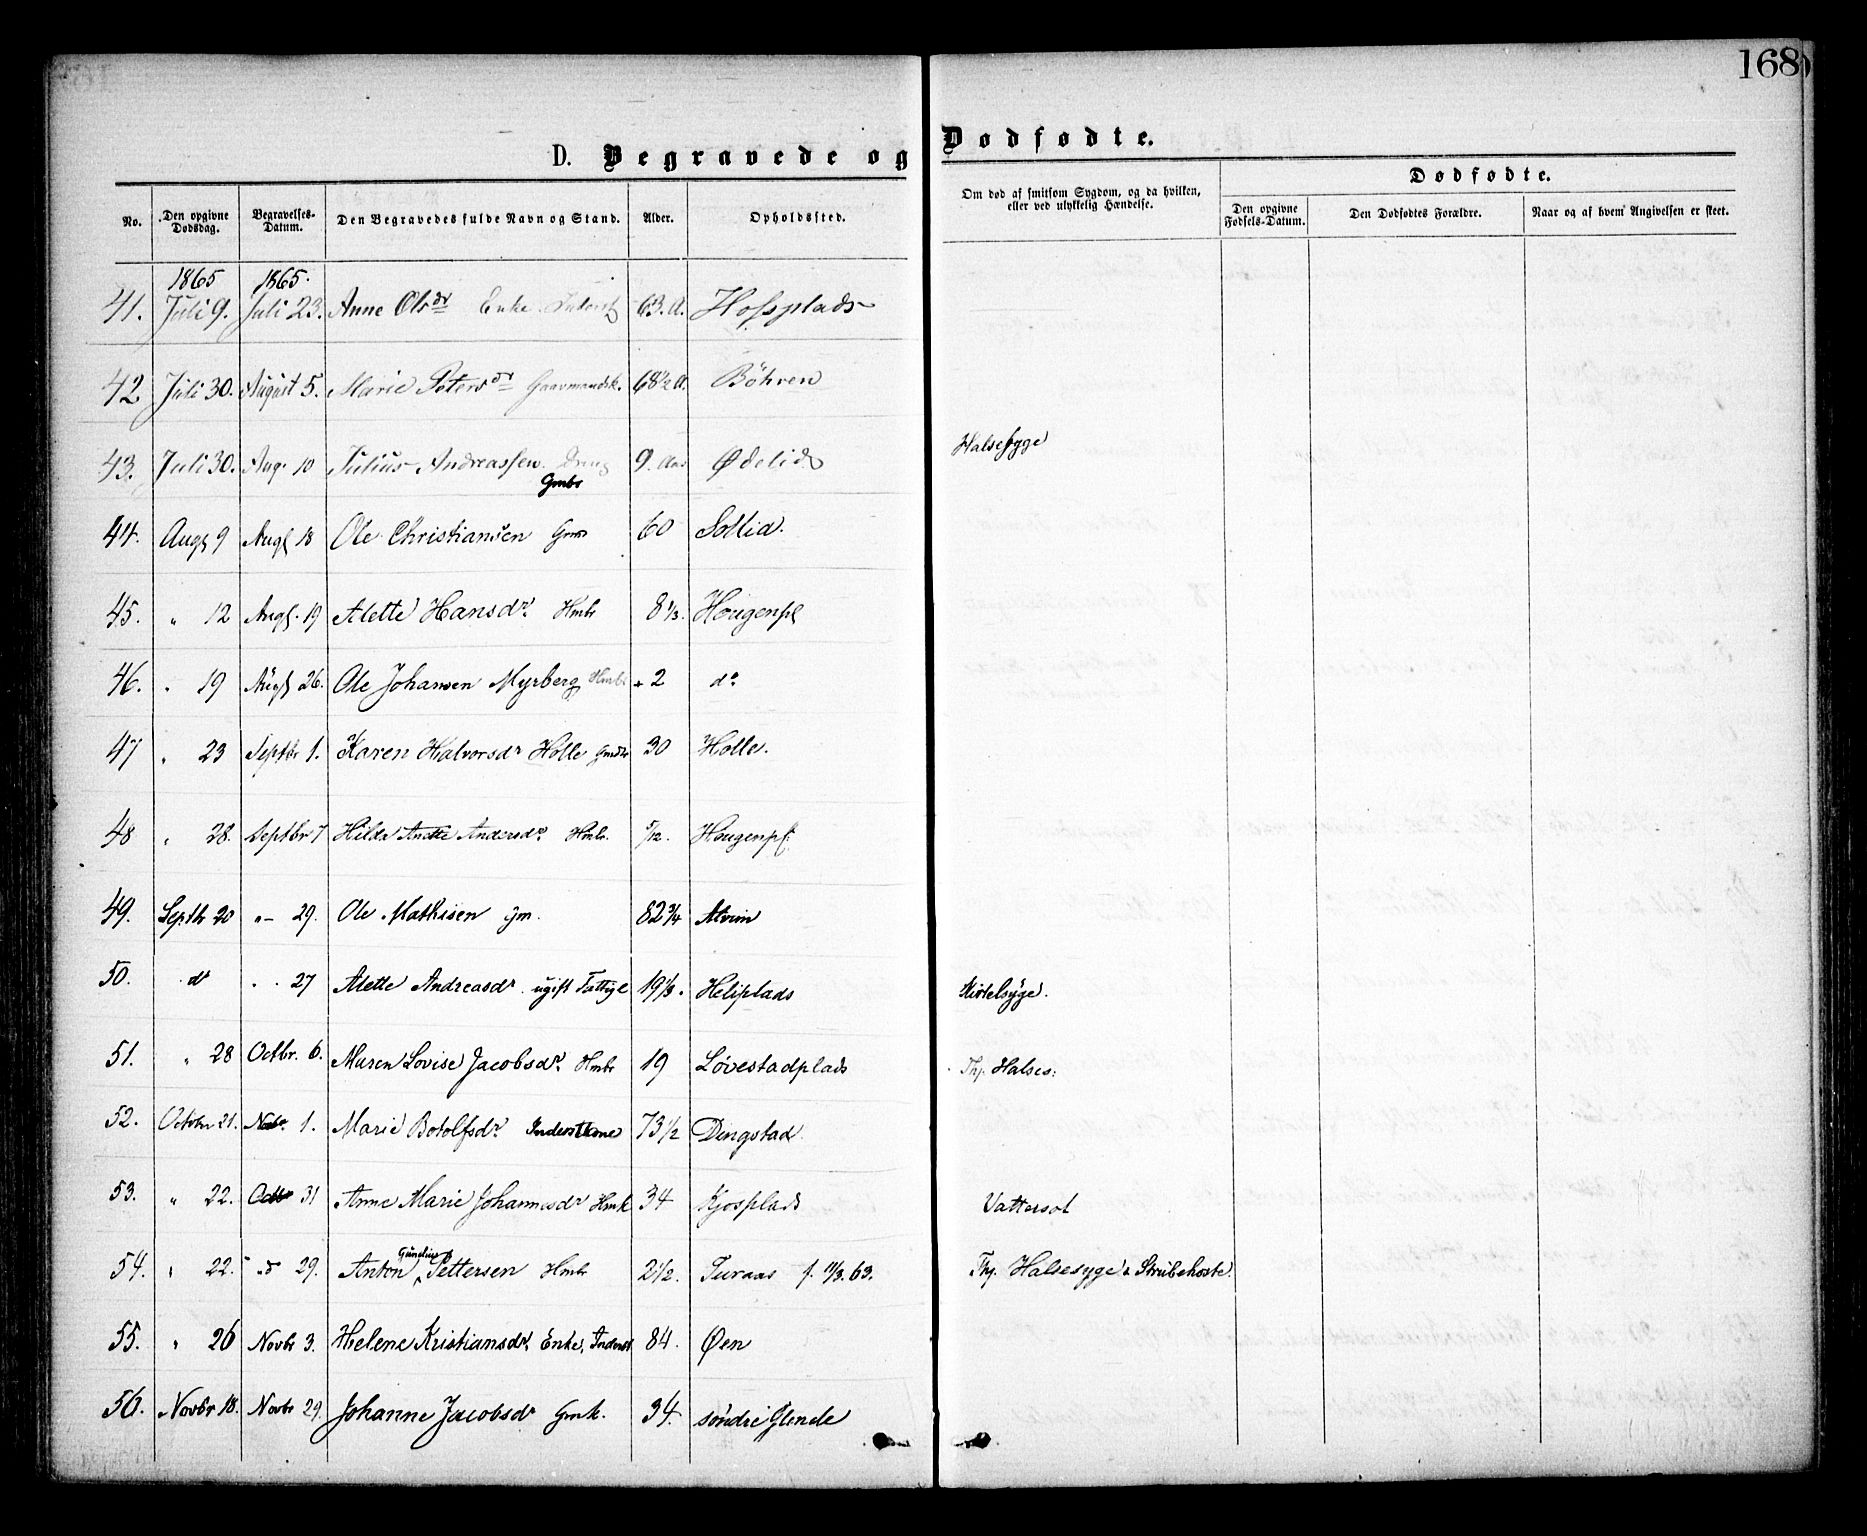 168
D. Begravede og Dødfødte.
No. Den opgivne Dødsdag. Begravelses-Datum. Den Begravedes fulde Navn og Stand. Alder. Opholdssted. Om død af smitsom Sygdom, og da hvilken, eller ved ulykkelig Hændelse. Dødfødte.
Den opgivne Fødsels-Datum. Den Dødfødtes Forældre. Naar og af hvem Angivelsen er skeet.
1865 1865.
41. Juli 9. Juli 23. Anne Olsdr Enke Inderst 63. A. Hofsplads
42 Juli 30. August 5. Marie Petersdr Gaardmandsk. 68 1/2 A. Böhren
43. Juli 30. Aug. 10 Julius Andreassen Dreng 9. Aar Ødelid Halsesyge
Gmbr
44. Aug 9 Aug 18 Ole Christiansen Gmd 60 Sollid.
45. " 12 Aug. 19 Alette Hansdr. Hmbr 8 1/3. Hougenpl
46. " 19 Aug 26. Ole Johansen Myrberg Hmbr 2 do
47 " 23 Septbr 1. Karen Halvorsdr Holle 30 Holle.
48 " 28. Septbr 7 Hilda Anette Andersdr. Hmbr. 5/12. Hougenpl.
49. Septbr 20 " – 29. Ole Mathisen gm. 82 3/4 Alvim
50. do " " 27 Alette Andreasdr. ugift Fattig 19 1/3. Heliplads Kirtelsyge.
51. " 28 Octbr. 6. Maren Lovise Jacobsdr. Hmbr 19 Løvestadplads Thp. Halses:
52. Octobr 21. Nobr. 1. Marie Botolfsdr. Inderstkone 73 1/2 Dingstad
53. " 22. Octbr 31 Anne Marie Johannesdr Hmk 34 Kjosplads Vattersot
54. " 22. " d 29. Anton Gundius Pettersen Hmbr 2 1/2. Turaas f. 11/3. 63. Thp. Halsesyge & Strubehoste.
55. " 26 Novbr 3. Helene Kristiansdr. Enke, Inderst 84. Øen
56. Novbr 18. Novbr 29. Johanne Jacobsdr Gmk. 34. søndre Glende